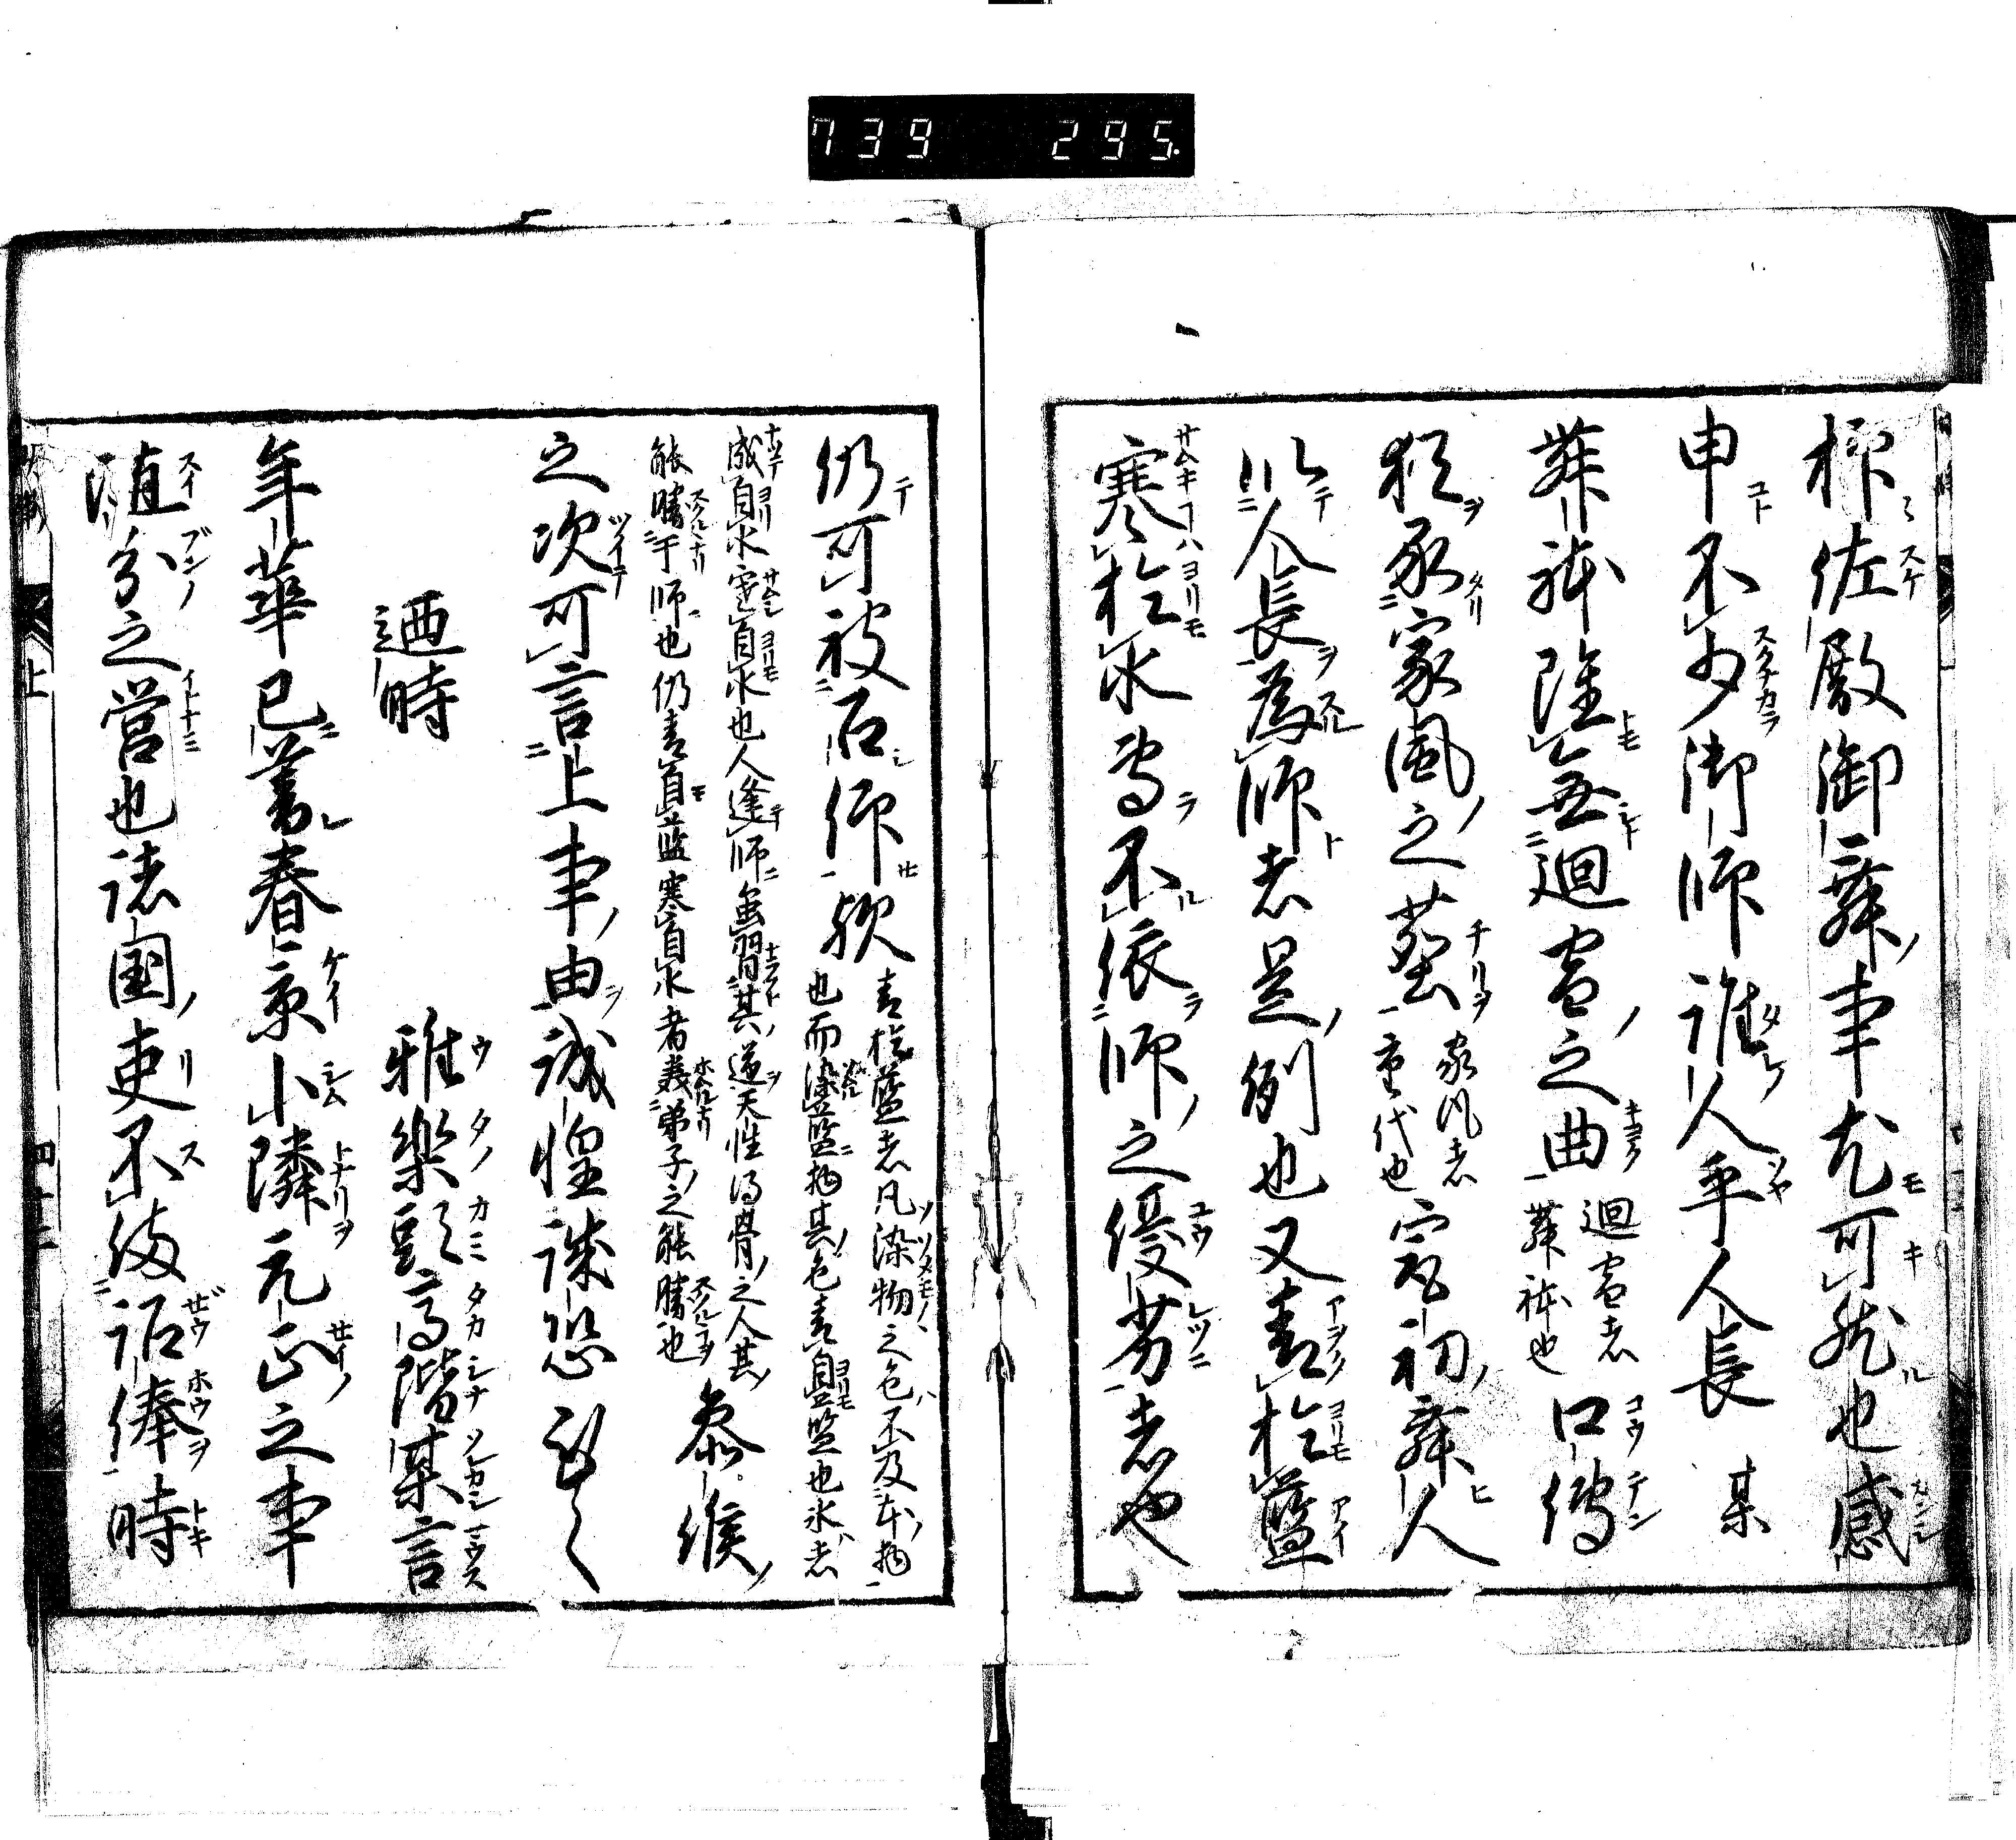 739 295.
抑佐殿御舞事尤可然也感
申不少御師誰人乎人長 某
舞躰雖無廻雪之曲 廻雪者 舞躰也 口傳
猶承家風之塵 家風者 重代也 寔初舞人
以人長為師者是例也又青於藍
寒於氷為不依師之優劣者也
仍可被召仰歟 青於藍者凡染物之色不及本物
也而染藍物其色青自藍也氷者
成自水寒自水也人逢師雖習其道天性得骨之人其
能勝于師也仍青自藍寒自水者美弟子之能勝也 恭候
之次可言上事由誠惶誠恐
廼時
雅樂頭高階某言
年華已暮春景小隣元正之事
随分之営也諸国吏不備詔俸時
上 四十二